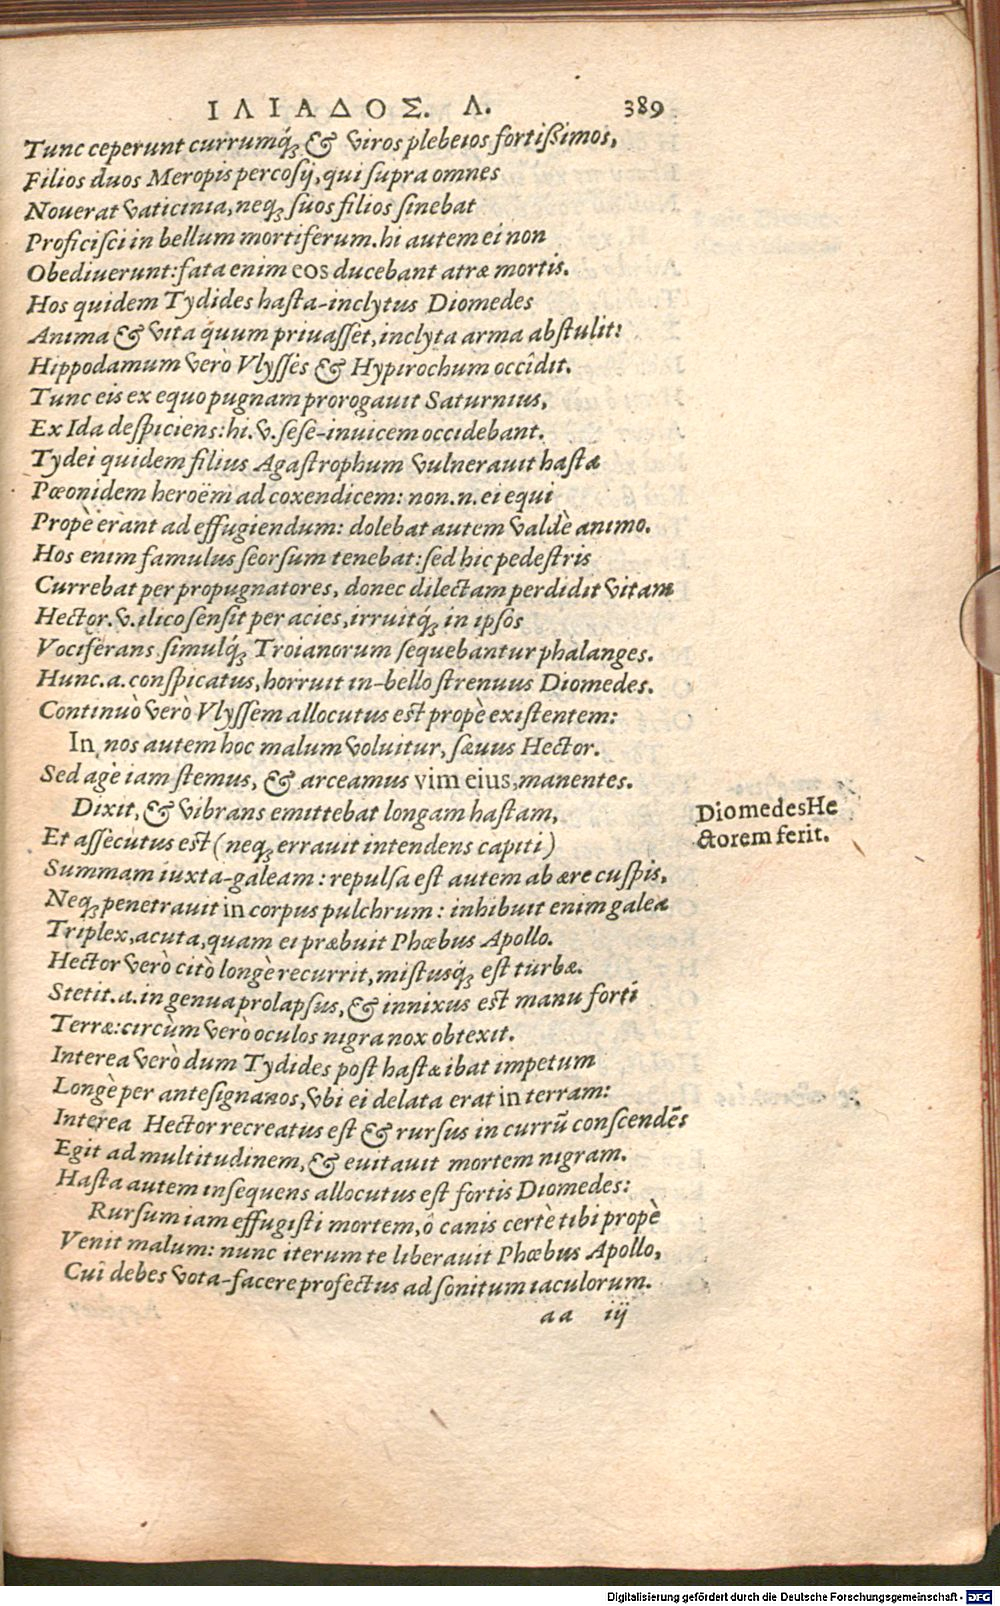 ΙΛΙΑΔΟΣ. Λ. 389
Tunc ceperunt currumq́ꝫ & viros plebeios fortißimos,
Filios duos Meropis percosij, qui supra omnes
Nouerat vaticinia, neqꝫ suos filios sinebat
Proficisci in bellum mortiferum. hi autem ei non
Obediuerunt: fata enim eos ducebant atræ mortis.
Hos quidem Tydides hasta-inclytus Diomedes
Anima & vita quum priuasset, inclyta arma abstulit:
Hippodamum verò Vlysses & Hypirochum occîdit.
Tunc eis ex equo pugnam prorogauit Saturnius,
Ex Ida despiciens: hi. v. sese-inuicem occidebant.
Tydei quidem filius Agastrophum vulnerauit hasta
Pœonidem heroëm ad coxendicem: non. n. ei equi
Propè erant ad effugiendum: dolebat autem valdè animo.
Hos enim famulus seorsum tenebat: sed hic pedestris
Currebat per propugnatores, donec dilectam perdidit vitam
Hector. v. ilico sensit per acies, irruitq́ꝫ in ipsos
Vociferans simulq́ꝫ Troianorum sequebantur phalanges.
Hunc. a. conspicatus, horruit in-bello strenuus Diomedes.
Continuò verò Vlyssem allocutus est propè existentem:
In nos autem hoc malum voluitur, sæuus Hector.
Sed age iam stemus, & arceamus vim eius, manentes.
Dixit, & vibrans emittebat longam hastam,
Et assecutus est (neqꝫ errauit intendens capiti)
Summam iuxta-galeam: repulsa est autem ab ære cuspis,
Neqꝫ penetrauit in corpus pulchrum: inhibuit enim galea
Triplex, acuta, quam ei præbuit Phœbus Apollo.
Hector verò citò longè recurrit, mistusq́ꝫ est turbæ.
Stetit. a. in genua prolapsus, & innixus est manu forti
Terræ: circùm verò oculos nigra nox obtexit.
Interea verò dum Tydides post hastæ ibat impetum
Longè per antesignanos, vbi ei delata erat in terram:
Interea Hector recreatus est & rursus in currũ conscendẽs
Egit ad multitudinem, & euitauit mortem nigram.
Hasta autem insequens allocutus est fortis Diomedes:
Rursum iam effugisti mortem, ô canis certè tibi propè
Venit malum: nunc iterum te liberauit Phœbus Apollo,
Cui debes vota-facere profectus ad sonitum iaculorum.
aa iij
Diomedes He
ctorem ferit.
Digitalisierung gefördert durch die Deutsche Forschungsgemeinschaft - DFG